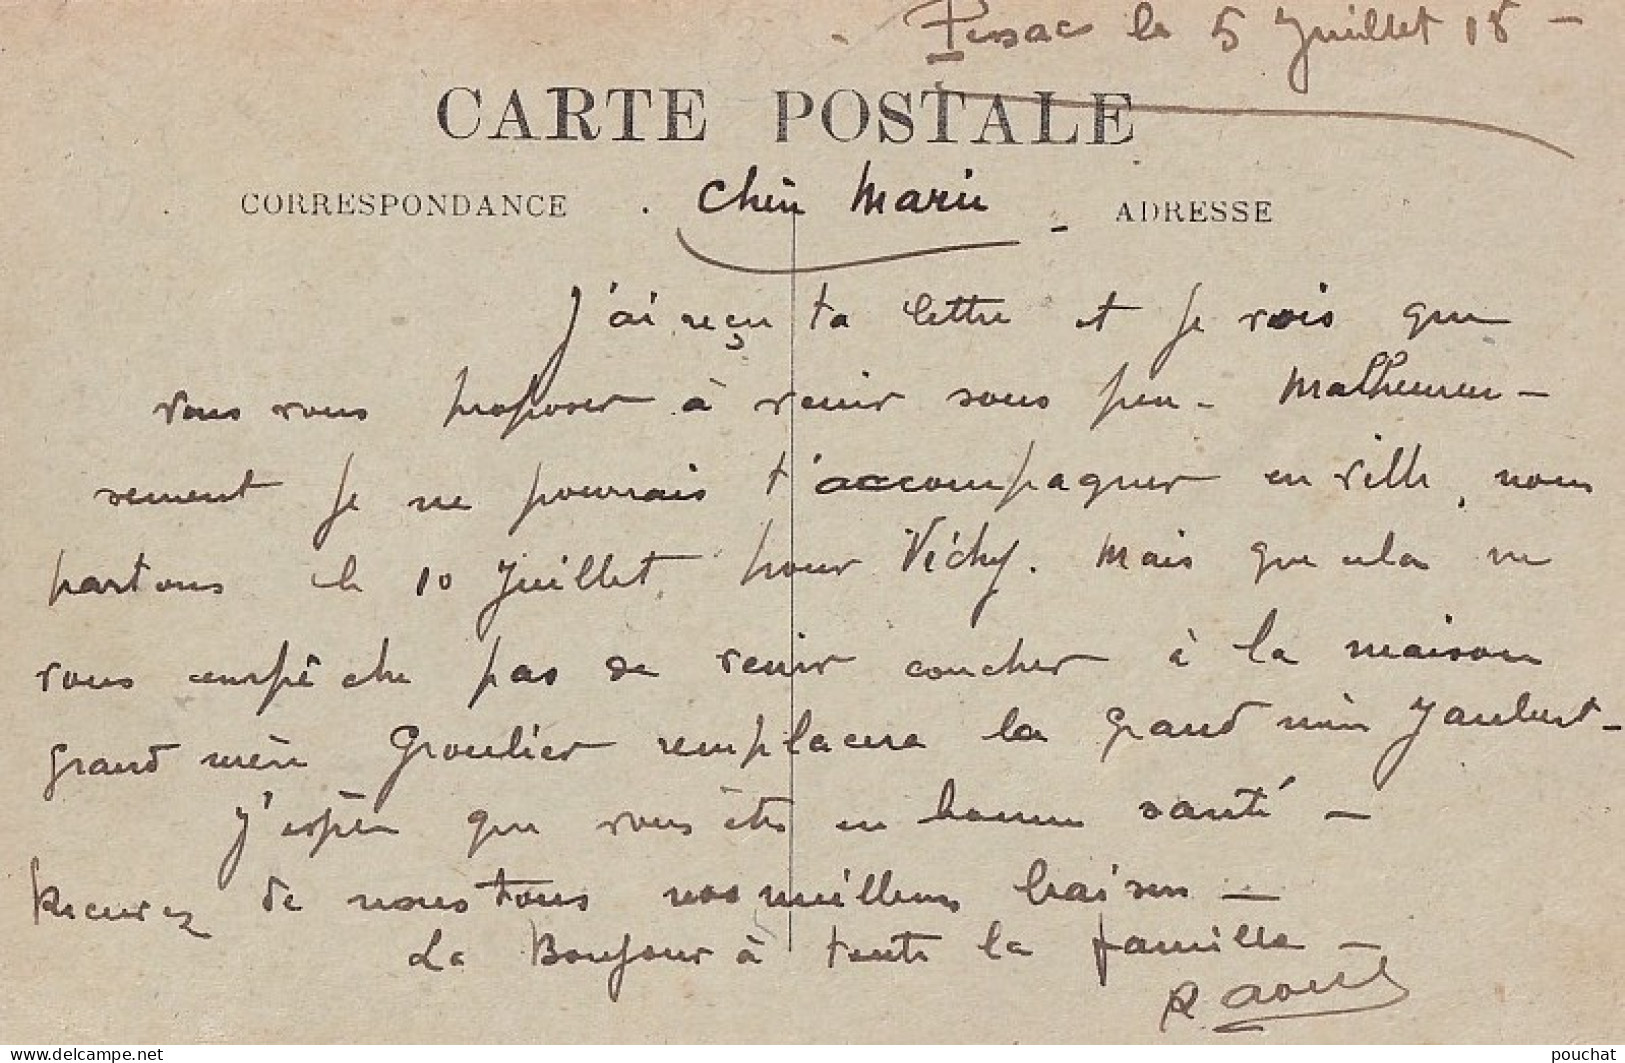 Pessac le 5 Juillet 18 -
CARTE POSTALE
CORRESPONDANCE
Chère Marie
ADRESSE
J'ai reçu ta lettre et je vois que
vous vous proposer à venir sous peu - Malheureu-
sement je ne pourrais t'accompagner en ville, nous
partons le 10 Juillet pour Vichy. Mais que cela ne
vous empêche pas de venir coucher à la maison
grand mère Groulier remplacera la grand mère Jaubert -
J'espère que vous êtes en bonne santé -
Recevez de nous tous nos meilleurs baisers -
Le Bonjour à toute la famille -
Raoul
delcampe.net
pouchat